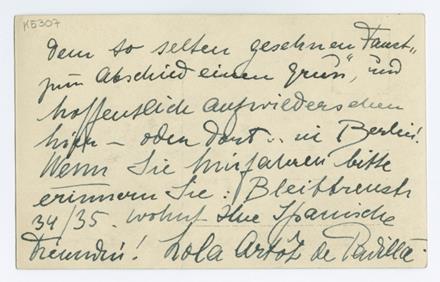 K5307
Dem so selten gesehnen Faust„
zum Abschied einen Gruss", und
hoffentlich aufwiedersehen
hier – oder dort .. in Berlin!
Wenn Sie hinfahren bitte
erinnern Sie : Bleibtreustr
34/35. wohnt Ihre Spanische
Freundin! Lola Artôt de Padilla.